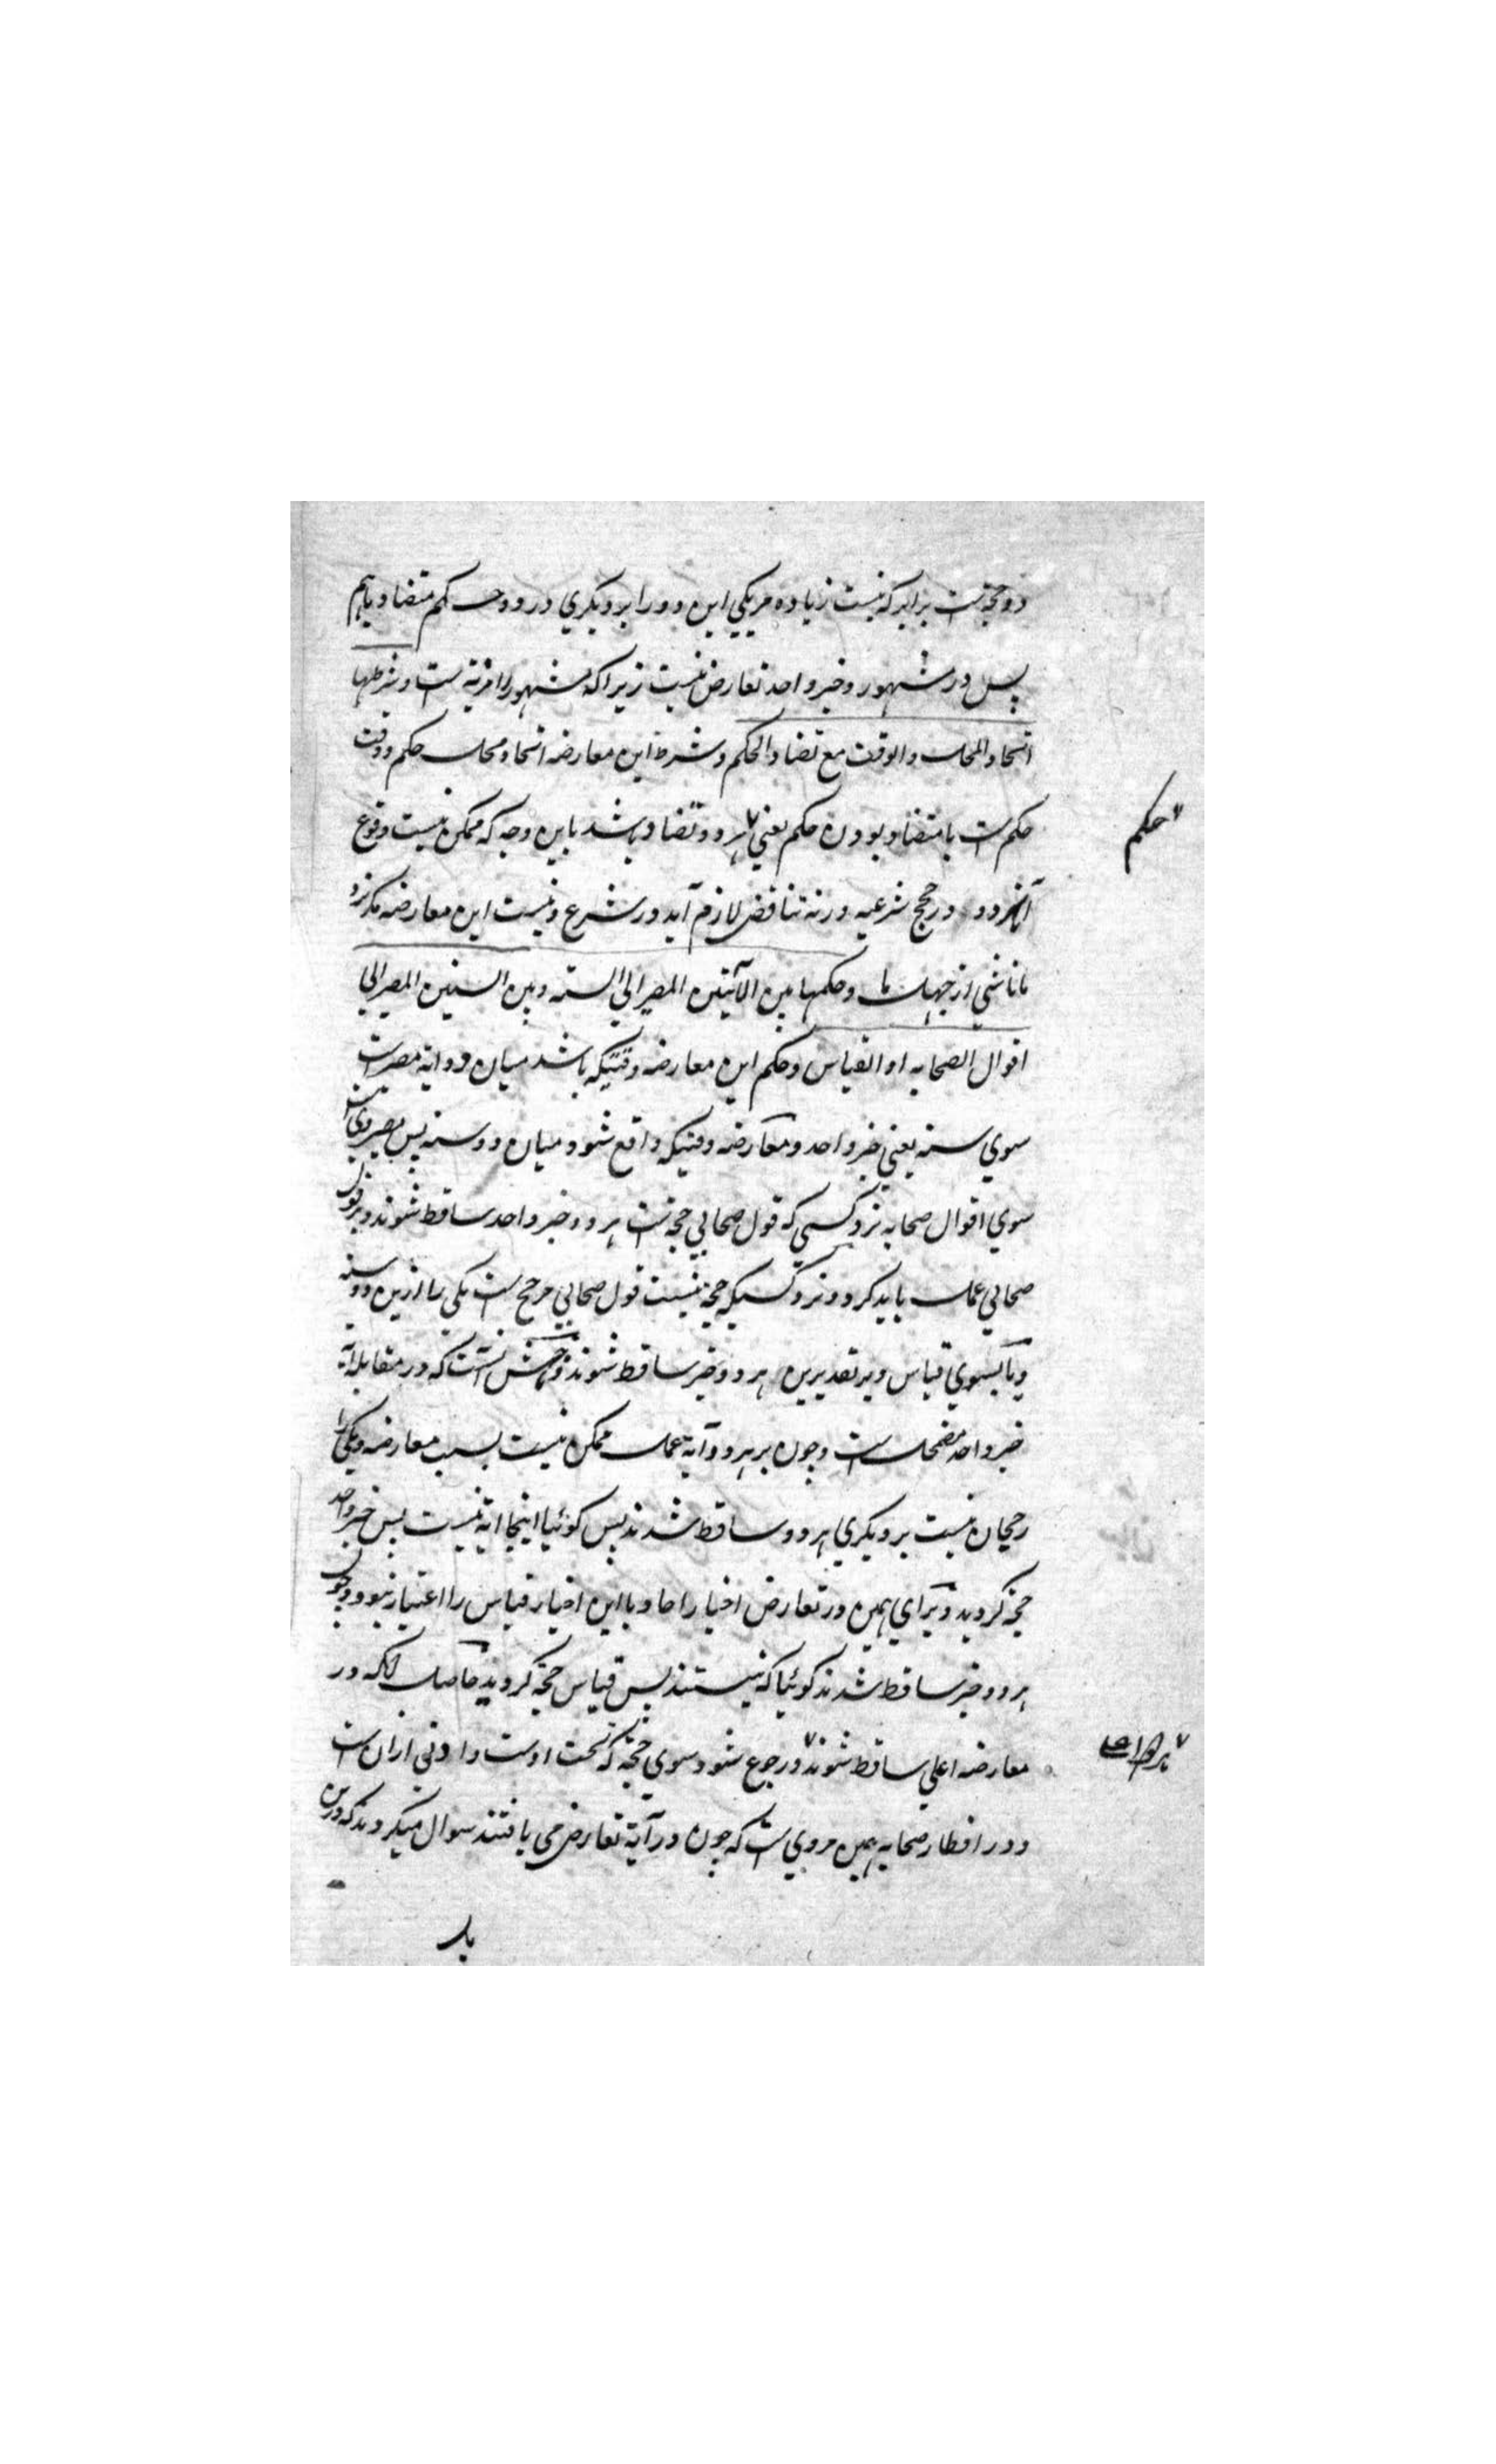 دو حجتست برابر که نیست زیاده مر یکی این دو را بر دیگری در دو حکم متضاد باهم
پس در مشهور و خبر واحد تعارض نیست زیراکه مشهور را مزیة است و شرطها
اتحاد المحل والوقت مع تضاد الحکم و شرط این معارضه اتحاد محل حکم و وقت
حکمست با متضاد بودن حکم یعنی هر دو تضاد باشد باین وجه که ممکن نیست وقوع
حکم
آنهر دو در حجج شرعیه ورنه تناقض لازم آید در شرع و نیست این معارضه مگر نزد
ما ناشی از جهل ما وحکمها بین الآیتین المصیر الی السنه وبین السنتین المصیر الی
اقوال الصحابه او القیاس و حکم این معارضه وقتیکه باشد میان دو ایة مصیرست
سوی سنه یعنی خبر واحد و معارضه وقتیکه واقع شود میان دو سنه پس مصیر وی
سوی اقوال صحابه نزد کسی که قول صحابی حجتست هر دو خبر واحد ساقط شوند و بر قول
صحابی عمل باید کرد و نزد کسیکه حجة نیست قول صحابی مرجح است یکی را ازین دو سنه
و یا بسوی قیاس و بر تقدیرین هر دو خبر ساقط شوند و آنست که در مقابله آیة
خبر واحد مضمحل است و چون بر هر دو آیة عمل ممکن نیست بسبب معارضه و یکی را
رجحان نیست بر دیگری هر دو ساقط شدند پس گوئیا اینجا ایة نیست پس خبر واحد
حجة گردید و برای همین در تعارض اخبار احاد با این اخبار قیاس را اعتبار نبود و چون
هر دو خبر ساقط شدند گوئیا که نیستند پس قیاس حجة گردید حاصل انکه در
معارضه اعلی ساقط شوند و رجوع شود سوی حجة که تحت اوست و ادنی ازان است
و در افطار صحابه همین مرویست که چون در آیة تعارض می یافتند سوال میکردند که درین
باب